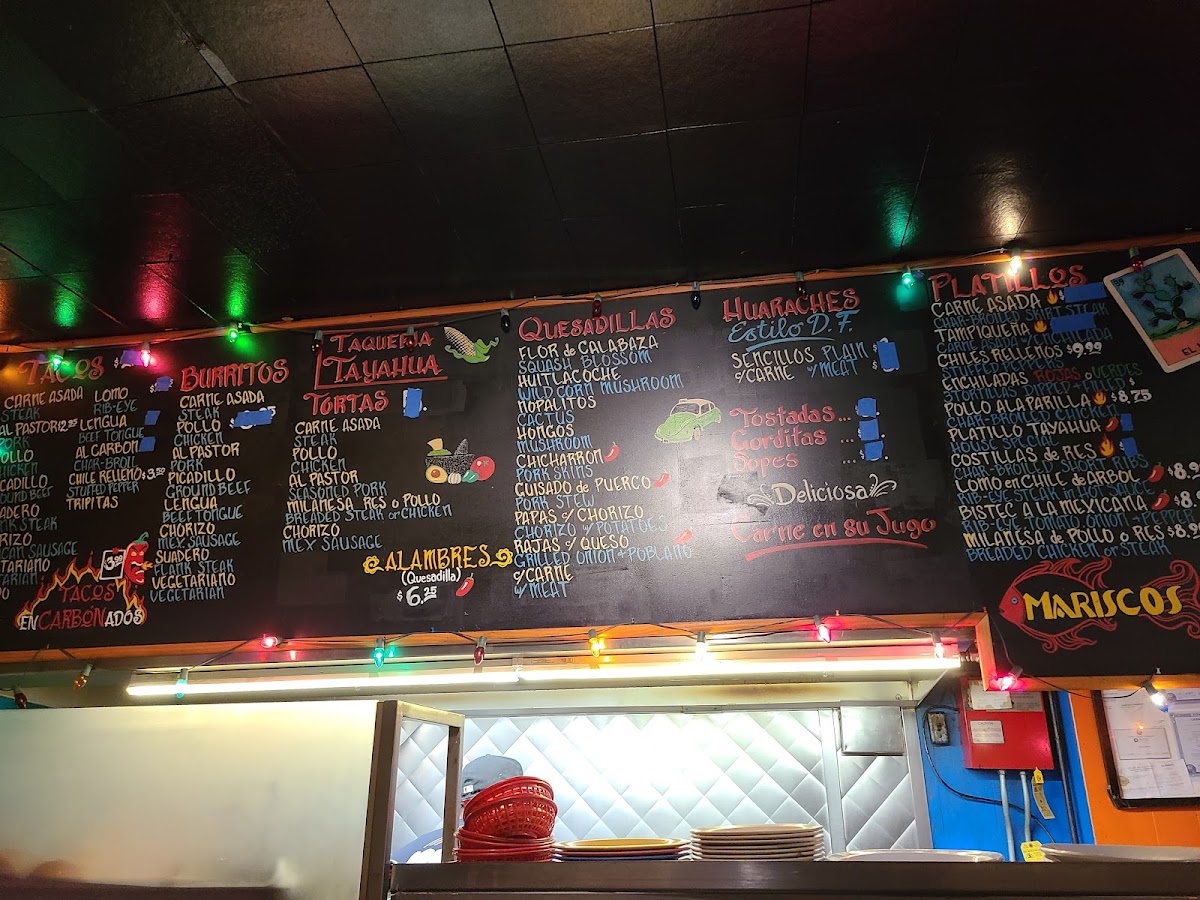 TACOS
CARNE ASADA
STEAK
AL PASTOR
PORK
POLLO
CHICKEN
LOMO
RIB-EYE
LENGUA
BEEF TONGUE
AL CARBON
CHAR-BROIL
CHILE RELLENO $3.50
STUFFED PEPPER
TRIPITAS
$3.99
TACOS
ENCARBÓNADOS
BURRITOS
CARNE ASADA
STEAK
POLLO
CHICKEN
AL PASTOR
PORK
PICADILLO
GROUND BEEF
LENGUA
BEEF TONGUE
CHORIZO
MEX SAUSAGE
SUADERO
FLANK STEAK
VEGETARIANO
VEGETARIAN
TAQUERIA
TAYAHUA
TORTAS
CARNE ASADA
STEAK
POLLO
CHICKEN
AL PASTOR
SEASONED PORK
MILANESA RES o POLLO
BREADED STEAK or CHICKEN
CHORIZO
MEX SAUSAGE
ALAMBRES
(Quesadilla)
$6.25
QUESADILLAS
FLOR de CALABAZA
SQUASH BLOSSOM
HUITLACOCHE
WILD CORN MUSHROOM
NOPALITOS
CACTUS
HONGOS
MUSHROOM
CHICHARRON
PORK SKINS
GUISADO de PUERCO
PORK STEW
PAPAS y CHORIZO
CHORIZO w/POTATOES
RAJAS y QUESO
GRILLED ONION + POBLANO
c/CARNE
w/MEAT
HUARACHES
Estilo D.F.
SENCILLOS PLAIN $
c/CARNE w/MEAT
Tostadas...
Gorditas ...
Sopes ...
Deliciosa
Carne en su Jugo
PLATILLOS
CARNE ASADA
CHAR-BROILED SKIRT STEAK
TAMPIQUEÑA
CARNE ASADA y ENCHILADA
CHILES RELLENOS $9.99
STUFFED PEPPERS
ENCHILADAS ROJAS o VERDES
POLLO A LA PARILLA $8.75
CHAR-BROILED CHICKEN
PLATILLO TAYAHUA $
HOUSE SPECIAL
COSTILLAS de RES $
CHAR-BROILED SHORT RIBS
LOMO en CHILE de ARBOL
RIB-EYE STEAK in HOT CHILE
BISTEC A LA MEXICANA
RIB-EYE TOMATO, ONION
MILANESA de POLLO o RES
BREADED CHICKEN or STEAK
MARISCOS